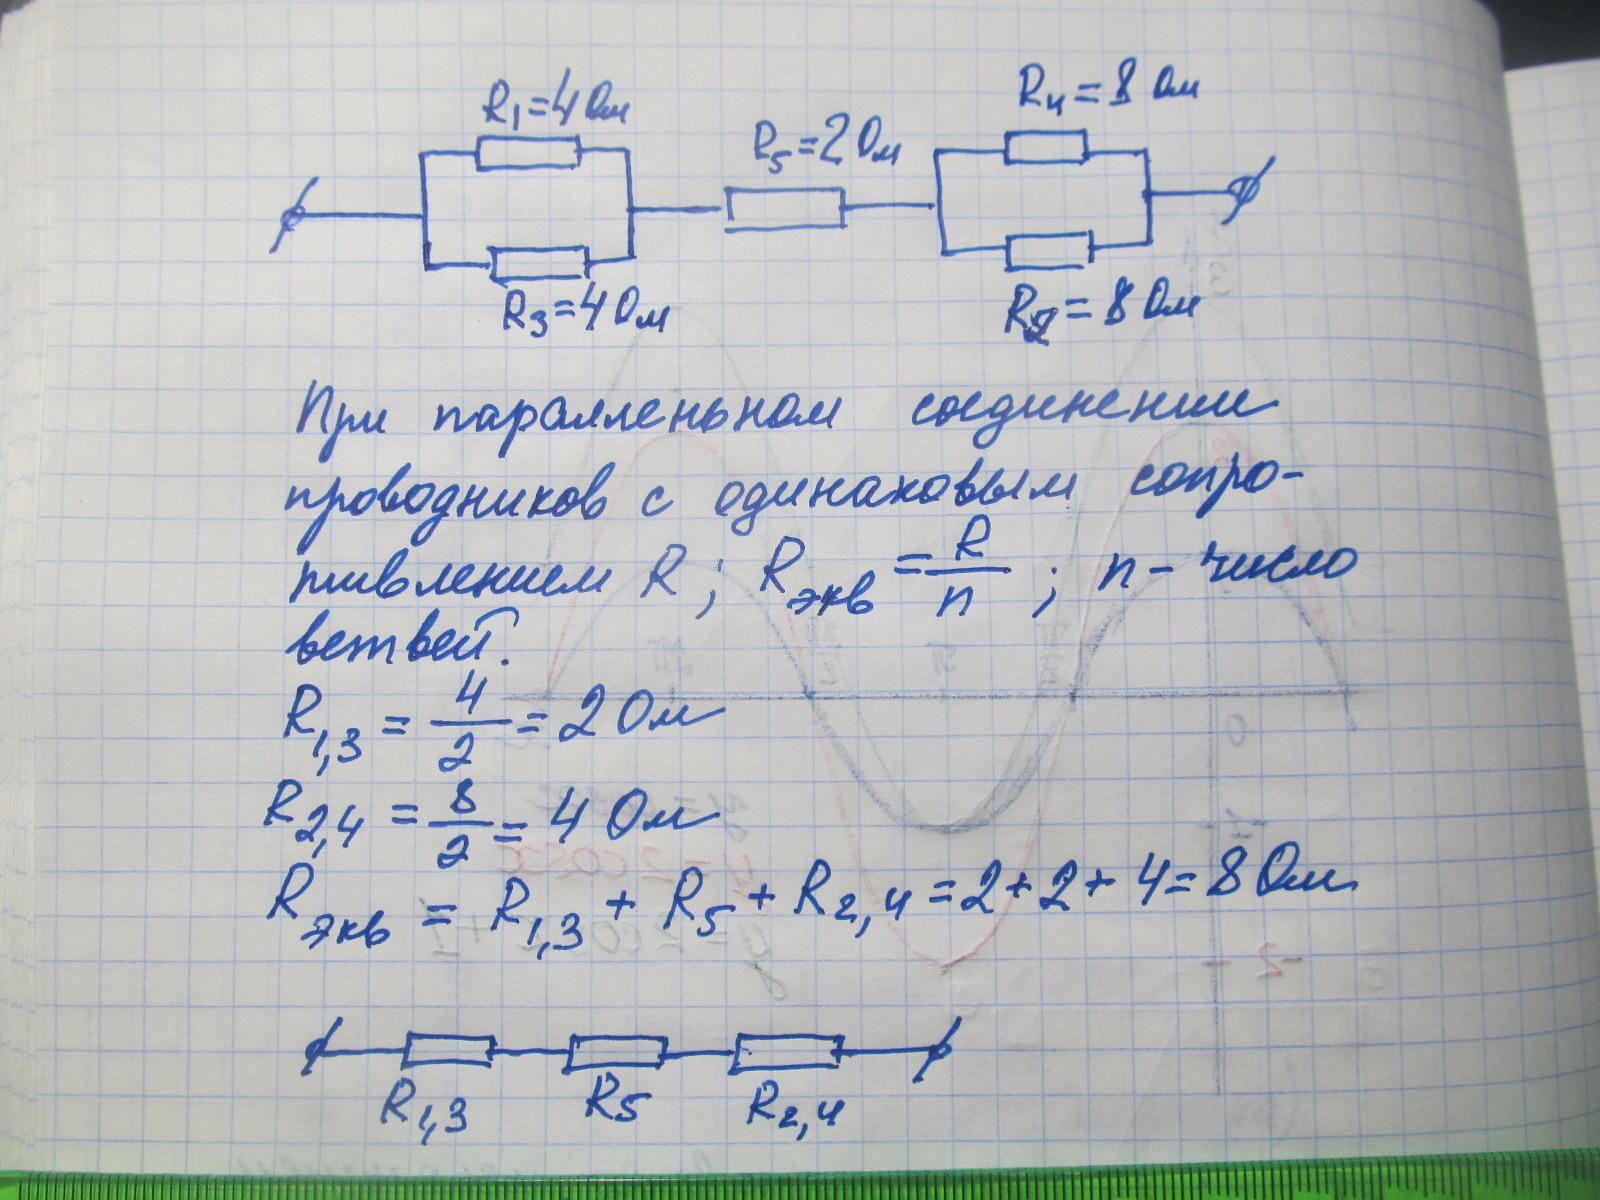 R1=4 Ом
R4=8 Ом
R5=2 Ом
R3=4 Ом
R2=8 Ом
При параллельном соединении
проводников с одинаковым сопро-
тивлением R; Rэкв = R/n ; n - число
ветвей.
R1,3 = 4/2 = 2 Ом
R2,4 = 8/2 = 4 Ом
Rэкв = R1,3 + R5 + R2,4 = 2+2+4=8 Ом
R1,3 R5 R2,4